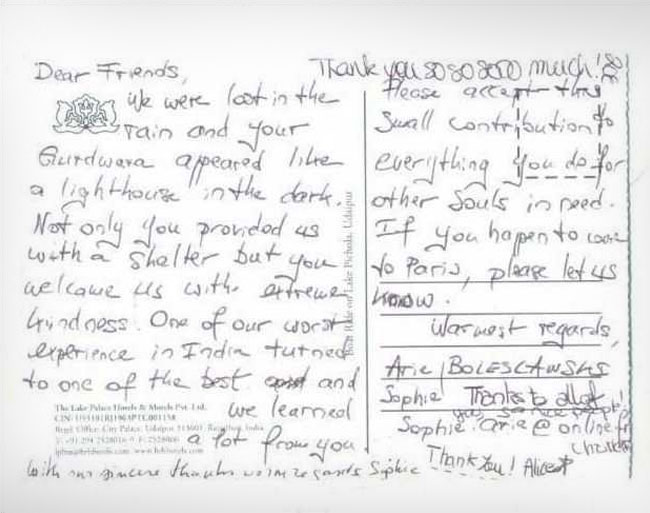 Dear Friends,
We were lost in the
rain and your
Gurdwara appeared like
a lighthouse in the dark.
Not only you provided us
with a shelter but you
welcome us with extreme
kindness. One of our worst
experience in India turned
to one of the best and
we learned
a lot from you
With our sincere thanks warm regards Sophie
The Lake Palace Hotels & Motels Pvt. Ltd.
Regd. Office: City Palace, Udaipur 313001, Rajasthan, India
Boat Ride on Lake Pichola, Udaipur
Thank you so so sooo much!
Please accept this
small contribution to
everything you do for
other souls in need.
If you happen to come
to Paris, please let us
know.
Warmest regards,
Arie BOLESLAWSKI
Sophie Thanks to all of
you so nice people!
Sophie.arie@online.fr
Charles
Thank you! Alice